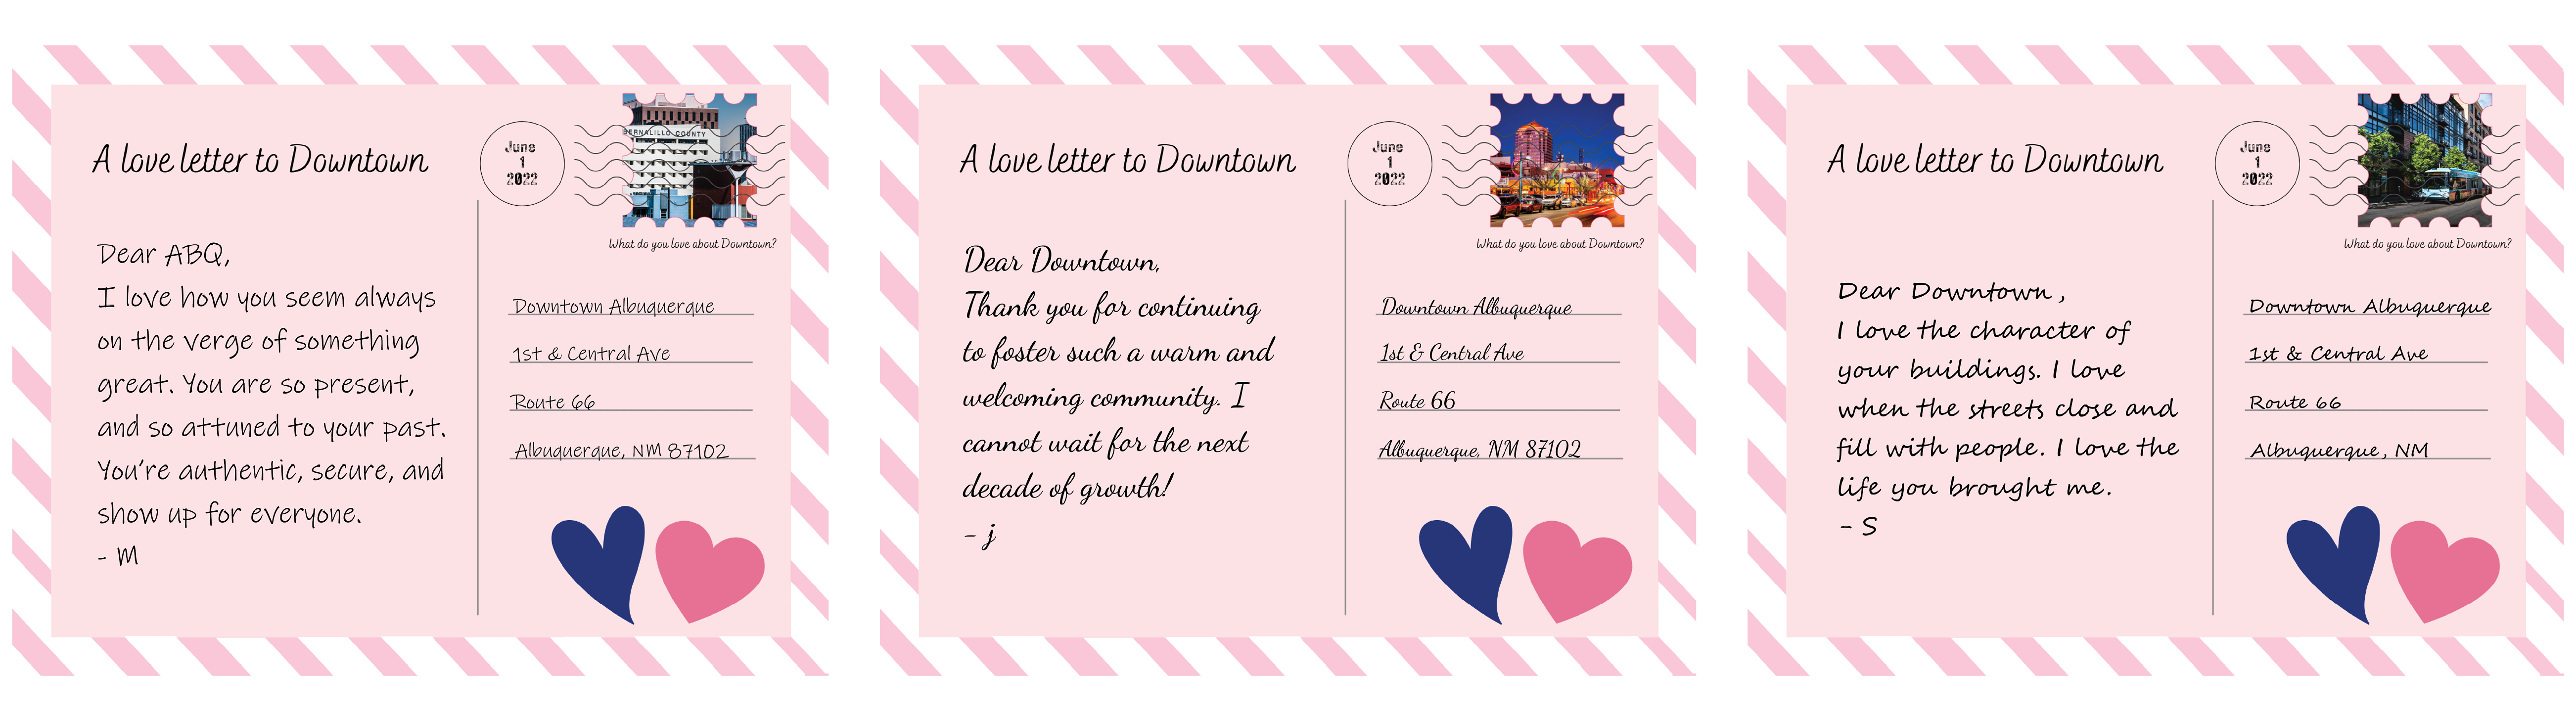 A love letter to Downtown
June
1
2022
BERNALILLO COUNTY
What do you love about Downtown?
Dear ABQ,
I love how you seem always
on the verge of something
great. You are so present,
and so attuned to your past.
You're authentic, secure, and
show up for everyone.
- M
Downtown Albuquerque
1st & Central Ave
Route 66
Albuquerque, NM 87102
A love letter to Downtown
June
1
2022
What do you love about Downtown?
Dear Downtown,
Thank you for continuing
to foster such a warm and
welcoming community. I
cannot wait for the next
decade of growth!
- j
Downtown Albuquerque
1st & Central Ave
Route 66
Albuquerque, NM 87102
A love letter to Downtown
June
1
2022
What do you love about Downtown?
Dear Downtown,
I love the character of
your buildings. I love
when the streets close and
fill with people. I love the
life you brought me.
- S
Downtown Albuquerque
1st & Central Ave
Route 66
Albuquerque, NM